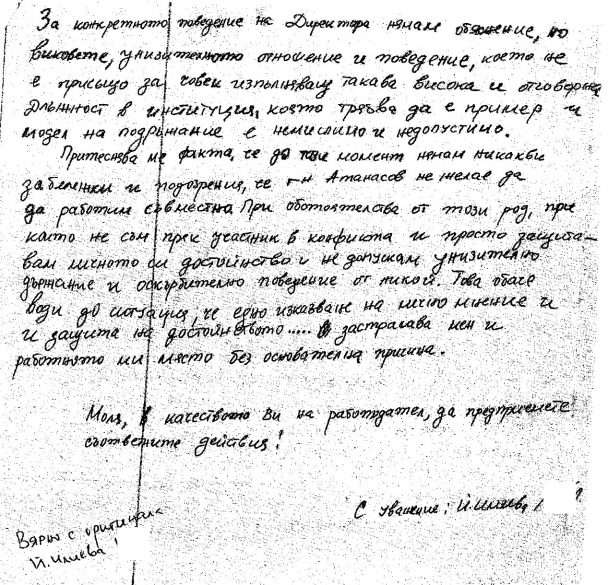 За конкретното поведение на Директора нямам обяснение, но
виковете, унизителното отношение и поведение, което не
е присъщо за човек изпълняващ такава висока и отговорна
длъжност в институция, която трябва да е пример и
модел на подражание е немислимо и недопустимо.
Притеснява ме факта, че до този момент нямам никакви
забележки и подозрения, че г-н Атанасов не желае да
да работим съвместно. При обстоятелства от този род, при
които не съм пряк участник в конфликта и просто защита-
вам личното си достойнство и не допускам унизително
държание и оскърбително поведение от никой. Това обаче
води до ситуация, че едно изказване на лично мнение и
и защита на достойнството..... застрашава мен и
работното ми място без основателна причина.
Моля, в качеството Ви на работодател, да предприемете
съответните действия!
С уважение: Й. Илиева
Вярно с оригинала
Й. Илиева!